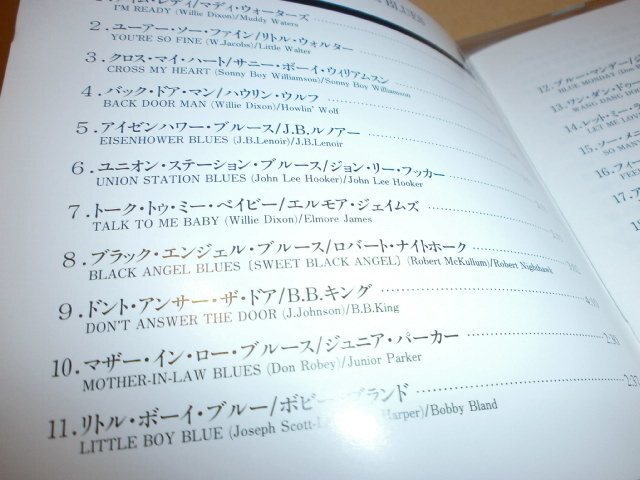 BLUES
アイム・レディ/マディ・ウォーターズ
I'M READY (Willie Dixon)/Muddy Waters
2.ユーアー・ソー・ファイン/リトル・ウォルター
YOU'RE SO FINE (W.Jacobs)/Little Walter
3.クロス・マイ・ハート/サニー・ボーイ・ウィリアムスン
CROSS MY HEART (Sonny Boy Williamson)/Sonny Boy Williamson
4.バック・ドア・マン/ハウリン・ウルフ
BACK DOOR MAN (Willie Dixon)/Howlin' Wolf
5.アイゼンハワー・ブルース/J.B.ルノアー
EISENHOWER BLUES (J.B.Lenoir)/J.B.Lenoir
6.ユニオン・ステーション・ブルース/ジョン・リー・フッカー
UNION STATION BLUES (John Lee Hooker)/John Lee Hooker
7.トーク・トゥ・ミー・ベイビー/エルモア・ジェイムズ
TALK TO ME BABY (Willie Dixon)/Elmore James
8.ブラック・エンジェル・ブルース/ロバート・ナイトホーク
BLACK ANGEL BLUES [SWEET BLACK ANGEL] (Robert McKullum)/Robert Nighthawk
9.ドント・アンサー・ザ・ドア/B.B.キング
DON'T ANSWER THE DOOR (J.Johnson)/B.B.King
10.マザー・イン・ロー・ブルース/ジュニア・パーカー
MOTHER-IN-LAW BLUES (Don Robey)/Junior Parker
11.リトル・ボーイ・ブルー/ボビー・ブランド
LITTLE BOY BLUE (Joseph Scott- Harper)/Bobby Bland
12.ブルー・マンデー/
BLUE MONDAY
13.ワン・ダン・ドゥー
WANG DANG DOO
14.レット・ミー
LET ME
15.ソー・メニ
SO MAN
16.フィー
FEE
17.